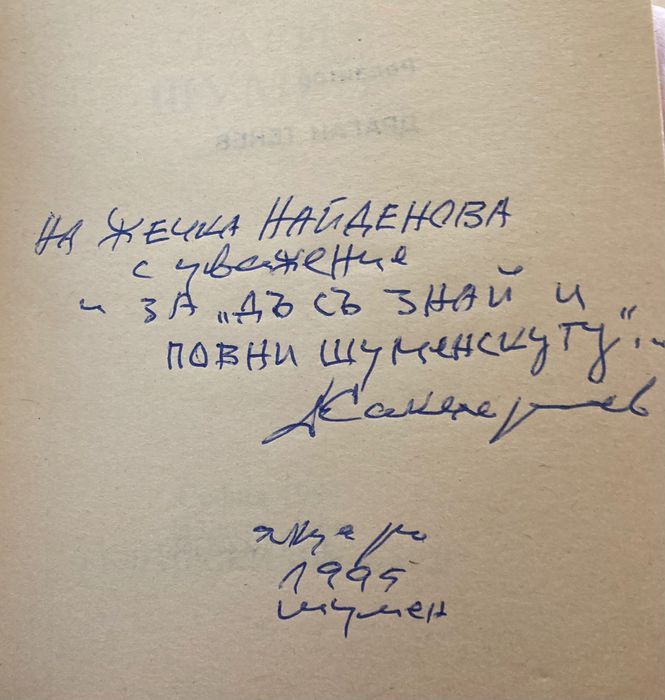 НА ЖЕЧКА НАЙДЕНОВА
с уважение
и ЗА „ДЪ СЪ ЗНАЙ И
ПОВНИ ШУМЕНСКУТУ“...
януари
1995
Шумен